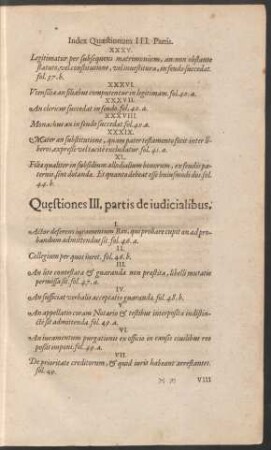 Index Quæstionum III. Partis.
XXXV.
Legitimatur per subsequens matrimonium, an non obstante
statuto, vel constitutione, vel inuestitura, in feudo succedat.
fol. 37. b.
XXXVI.
Vtrum filia an filiabus computentur in legitimam. fol. 40. a.
XXXVII.
An clericus succedat in feudo. fol. 40. a.
XXXVIII.
Monachus an in feudo succedat fol. 40. a.
XXXIX.
Mater an substitutione, quam pater testamento fecit inter li-
beros, expressè vel tacitè excludatur. fol. 41. a.
XL.
Filia qualiter in subsidium allodialium bonorum, ex feudis pa-
ternis sint dotanda. Et quanta debeat esse huiusmodi dos fol.
44. b.
Quęstiones III, partis de iudicialibus.
I.
Actor deferens iuramentum Reo, qui probare cupit an ad pro-
bandum admittendus sit. fol. 46. a.
II.
Collegium per quos iuret. fol. 46. b.
III.
An lite contestata & guaranda non præstita, libelli mutatio
permissa sit. fol. 47. a.
IV.
An sufficiat verbalis acceptatio guarandæ. fol. 48. b.
V.
An appellatio coram Notario & testibus interposita indistin-
ctè sit admittenda. fol. 49. a.
VI.
An iuramentum purgationis ex officio in causis ciuilibus rec
possit imponi. fol. 49. a.
VII.
De prioritate creditorum, & quid iuris habeant arrestantes.
fol. 49.
VIII